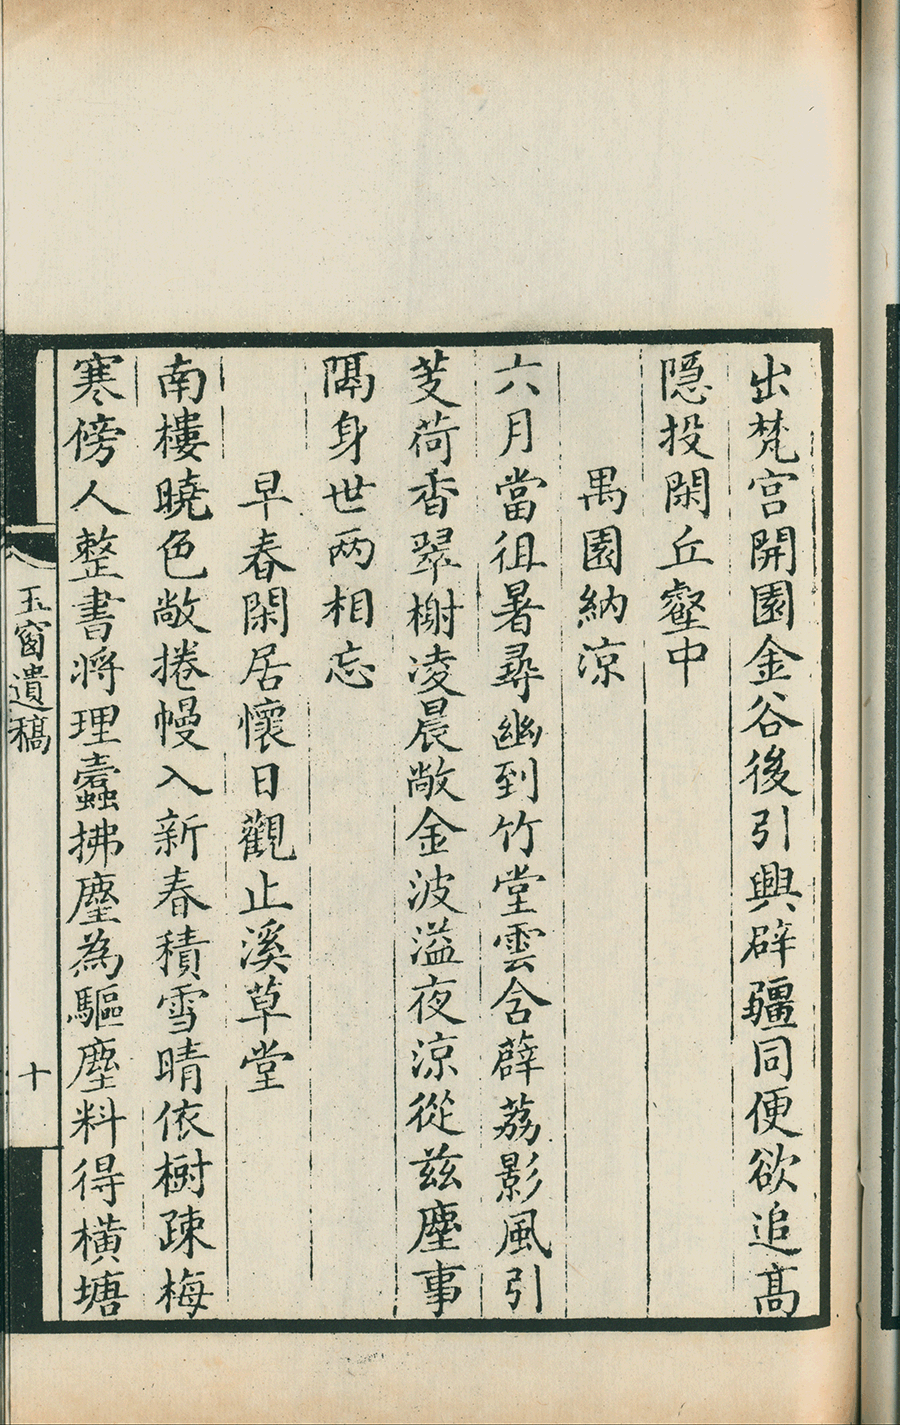 出梵宫開園金谷後引興辟疆同便欲追髙
隱投閑丘壑中
禺園納涼
六月當徂暑尋幽到竹堂雲含薜荔影風引
芰荷香翠榭凌晨敞金波溢夜涼從茲塵事
隔身世两相忘
早春閑居懷日觀止溪草堂
南樓曉色敞捲幔入新春積雪晴依樹疎梅
寒傍人整書將理蠹拂塵為驅塵料得橫塘
玉窗遺稿
十